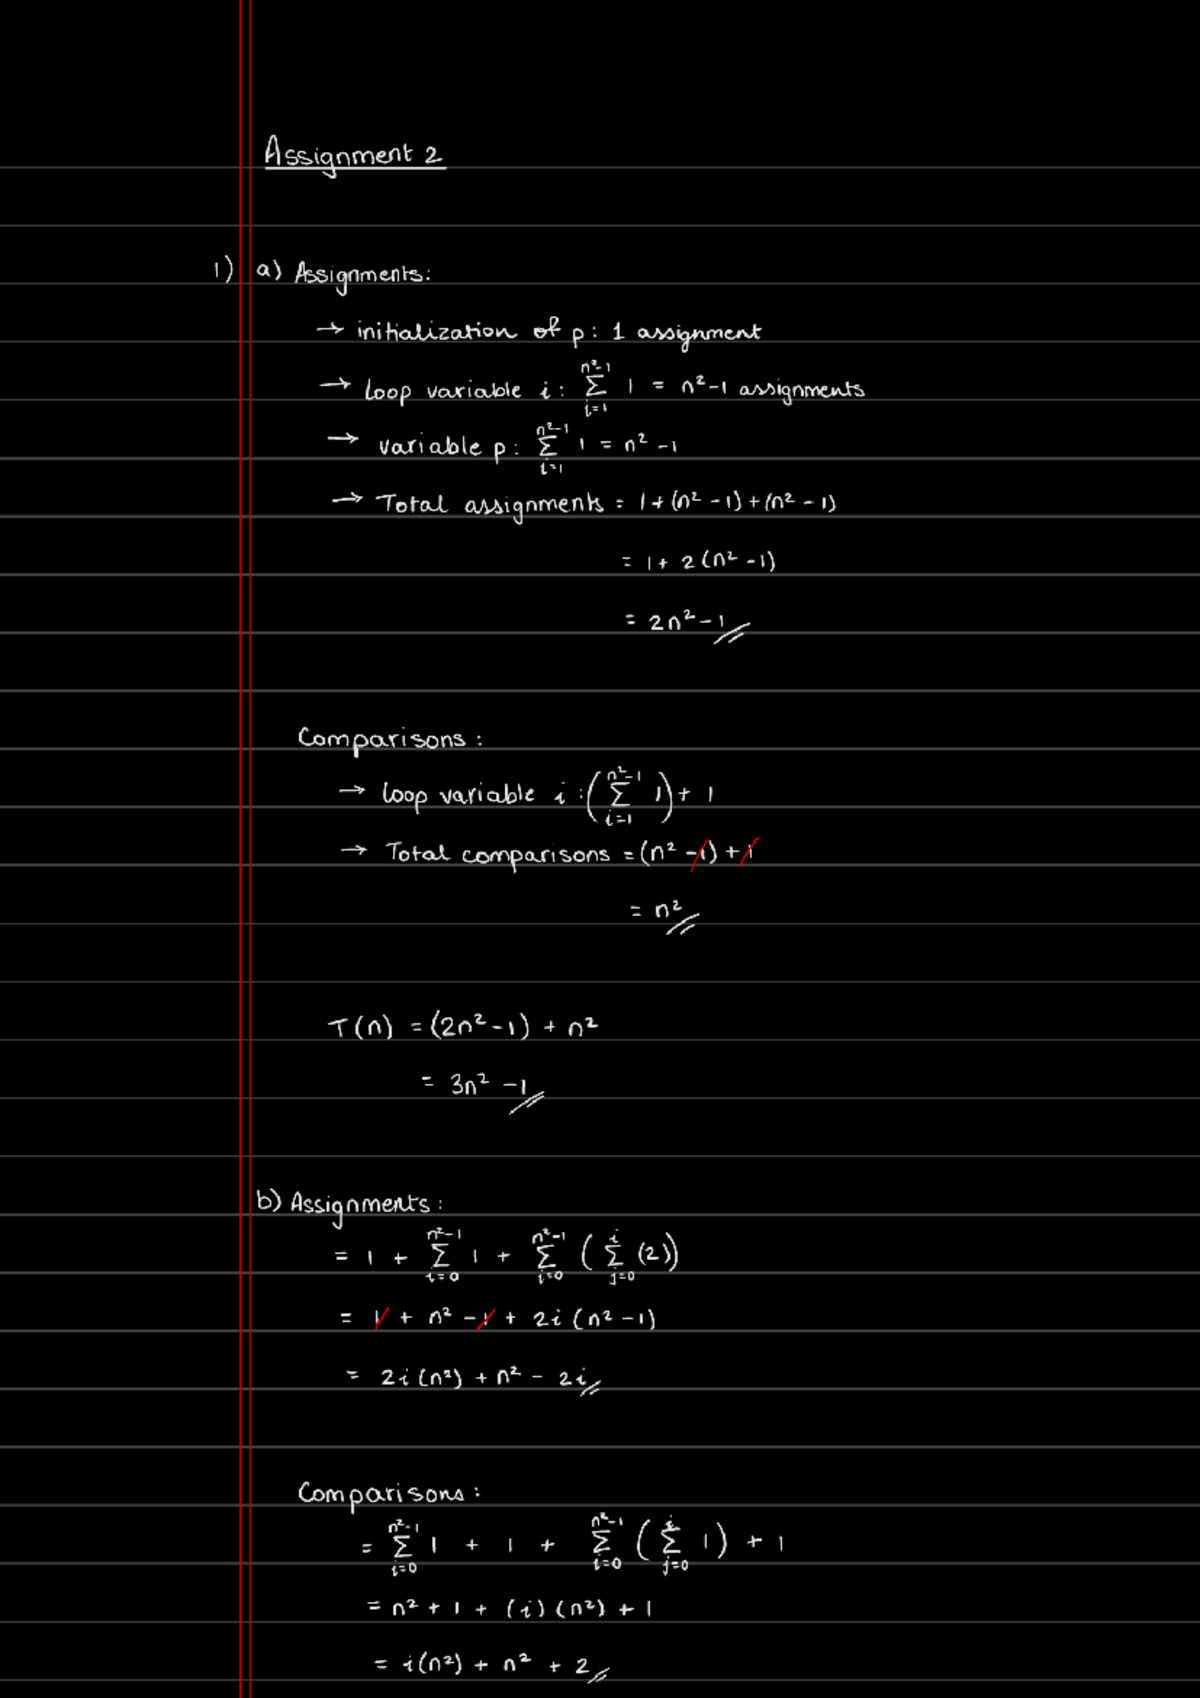 Assignment 2
1) a) Assignments:
→ initialization of p: 1 assignment
→ loop variable i: ∑_{i=1}^{n²-1} 1 = n²-1 assignments
→ variable p: ∑_{i=1}^{n²-1} 1 = n² -1
→ Total assignments = 1+(n² -1)+(n² -1)
= 1+ 2(n² -1)
= 2n² -1
Comparisons:
→ loop variable i: (∑_{i=1}^{n²-1} 1) + 1
→ Total comparisons = (n² -1) + 1
= n²
T(n) = (2n² -1) + n²
= 3n² -1
b) Assignments:
= 1 + ∑_{i=0}^{n²-1} 1 + ∑_{i=0}^{n²-1} (∑_{j=0}^{i} (2))
= 1 + n² - 1 + 2i (n² -1)
= 2i(n²) + n² - 2i
Comparisons:
= ∑_{i=0}^{n²-1} 1 + 1 + ∑_{i=0}^{n²-1} (∑_{j=0}^{i} 1) + 1
= n² + 1 + (i)(n²) + 1
= i(n²) + n² + 2